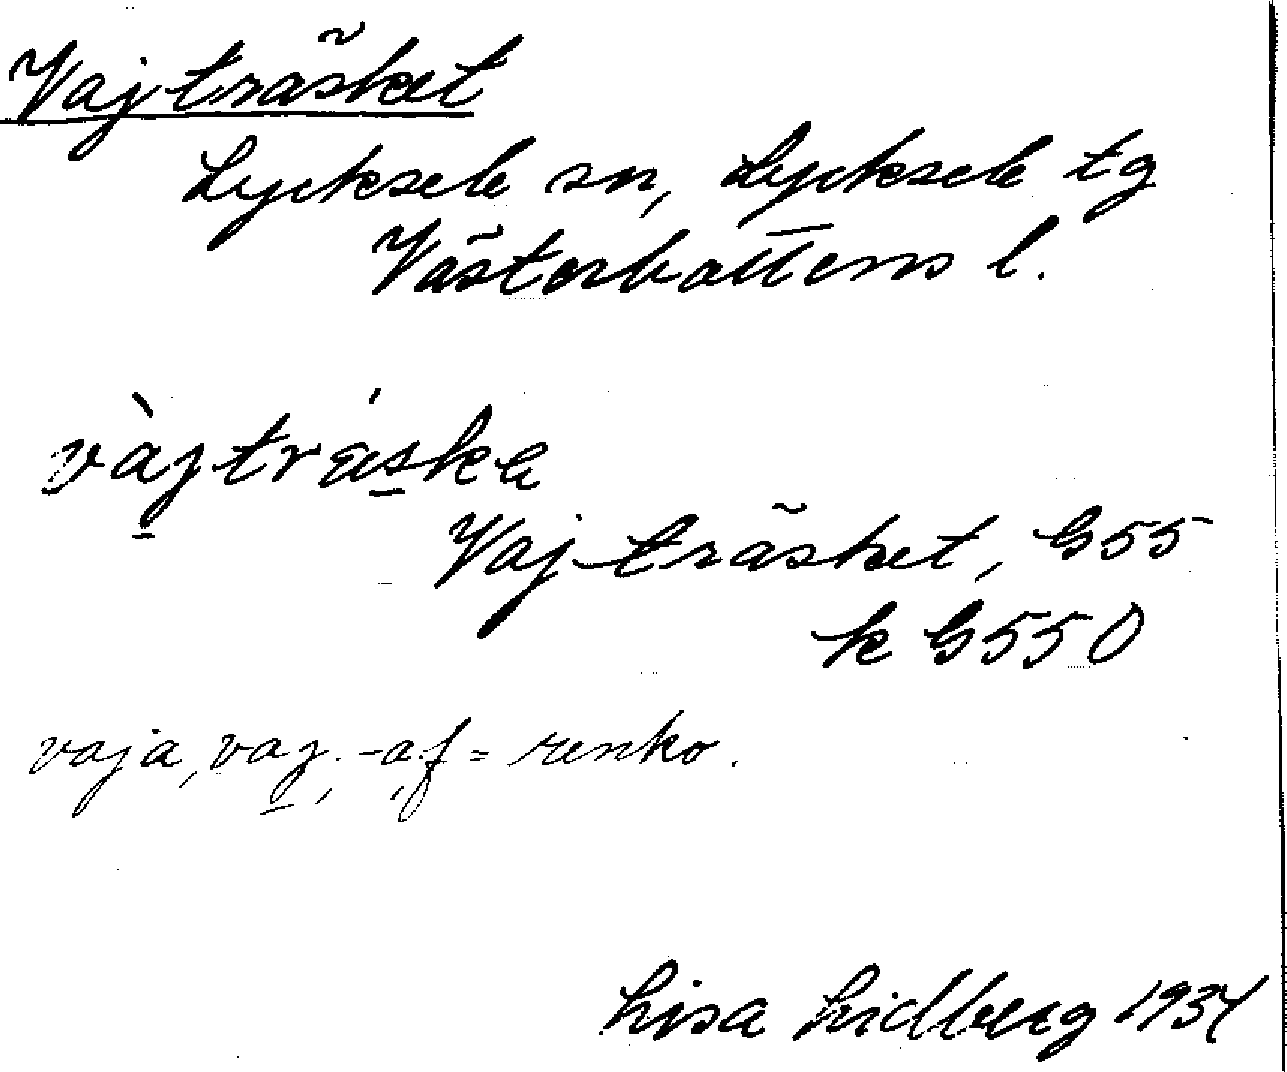 Vajträsket
Lycksele sn, Lycksele tg
Västerbottens l.
vàjtráska
Vajträsket, G55
k G550
vaja, vaj, -a, f = renko.
Lisa Lidberg 1934